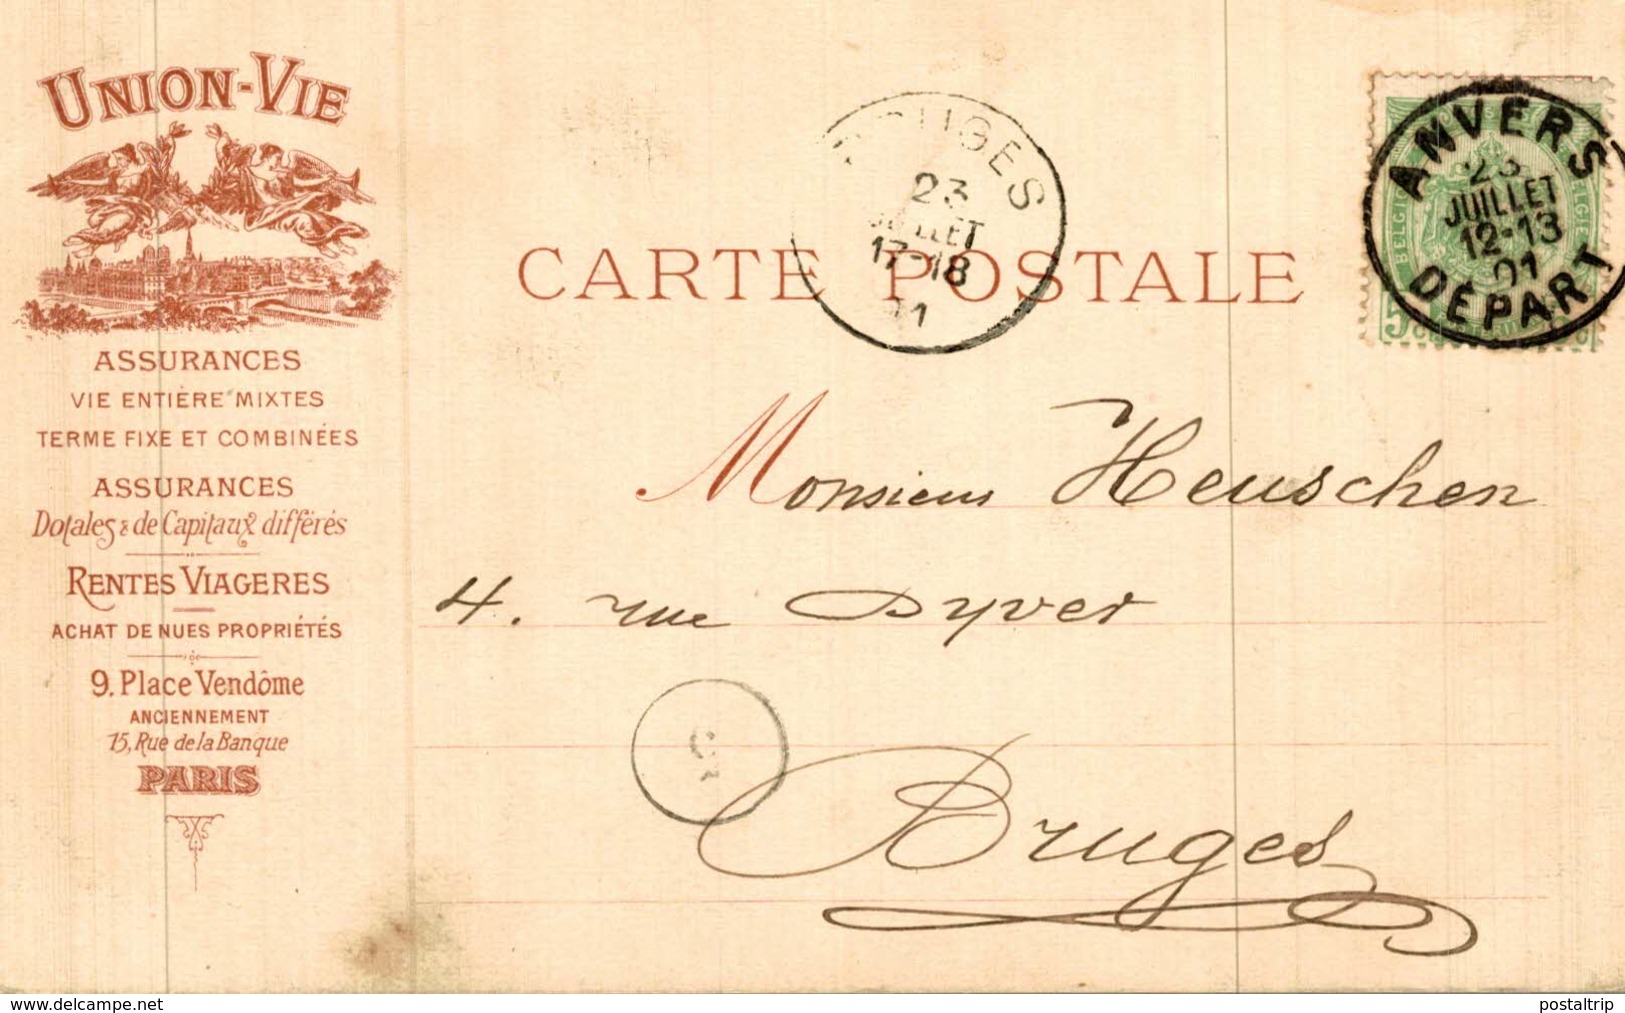 UNION-VIE
ASSURANCES
VIE ENTIÈRE MIXTES
TERME FIXE ET COMBINÉES
ASSURANCES
Dotales & de Capitaux différés
RENTES VIAGERES
ACHAT DE NUES PROPRIÉTÉS
9. Place Vendôme
ANCIENNEMENT
15, Rue de la Banque
PARIS
BRUGES
23
JUILLET
17-18
CARTE POSTALE
ANVERS
23
JUILLET
12-13
01
DÉPART
BELGIQUE
5c
Monsieur Heuschen
4. rue Dyver
Bruges
www.delcampe.net
postaltrip